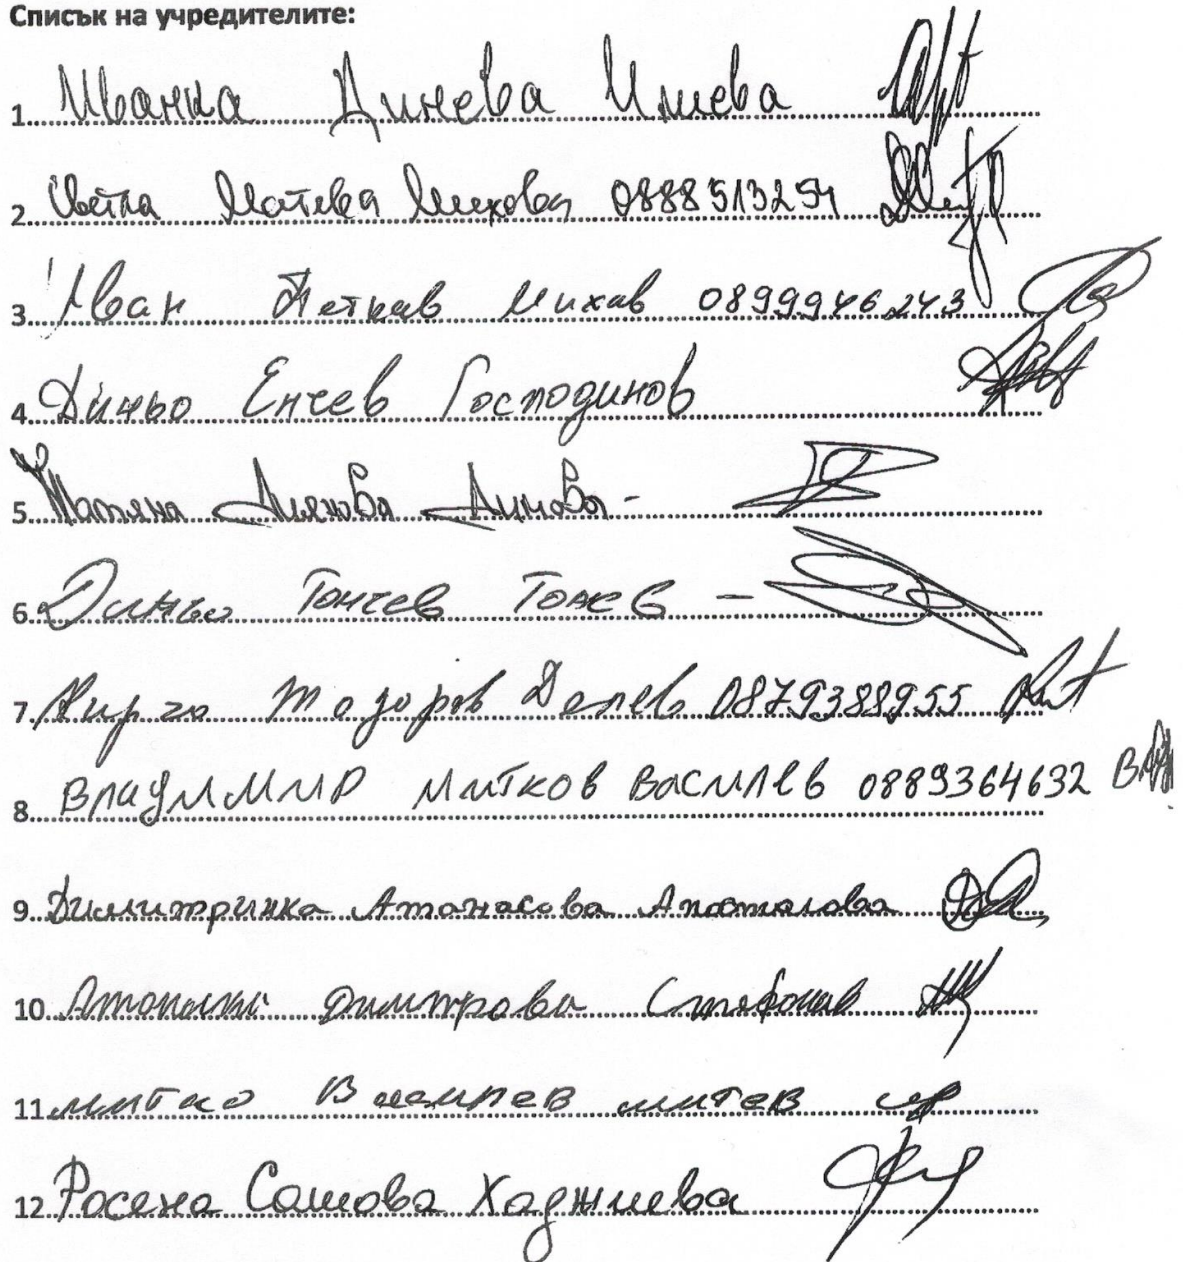 Списък на учредителите:
1. Иванка Динева Илиева
2. Цветла Матева Михова 0888513254
3. Иван Петков Михов 0899946243
4. Диньо Енчев Господинов
5. Татяна Диянова Динова -
6. Диньо Тончев Тонев -
7. Кирчо Тодоров Делев 0879388955
8. ВЛАДИМИР МИТКОВ ВАСИЛЕВ 0889364632
9. Димитринка Атанасова Апостолова
10. Димитрова
11. Митко митев
12. Росена Сашова Хаджиева